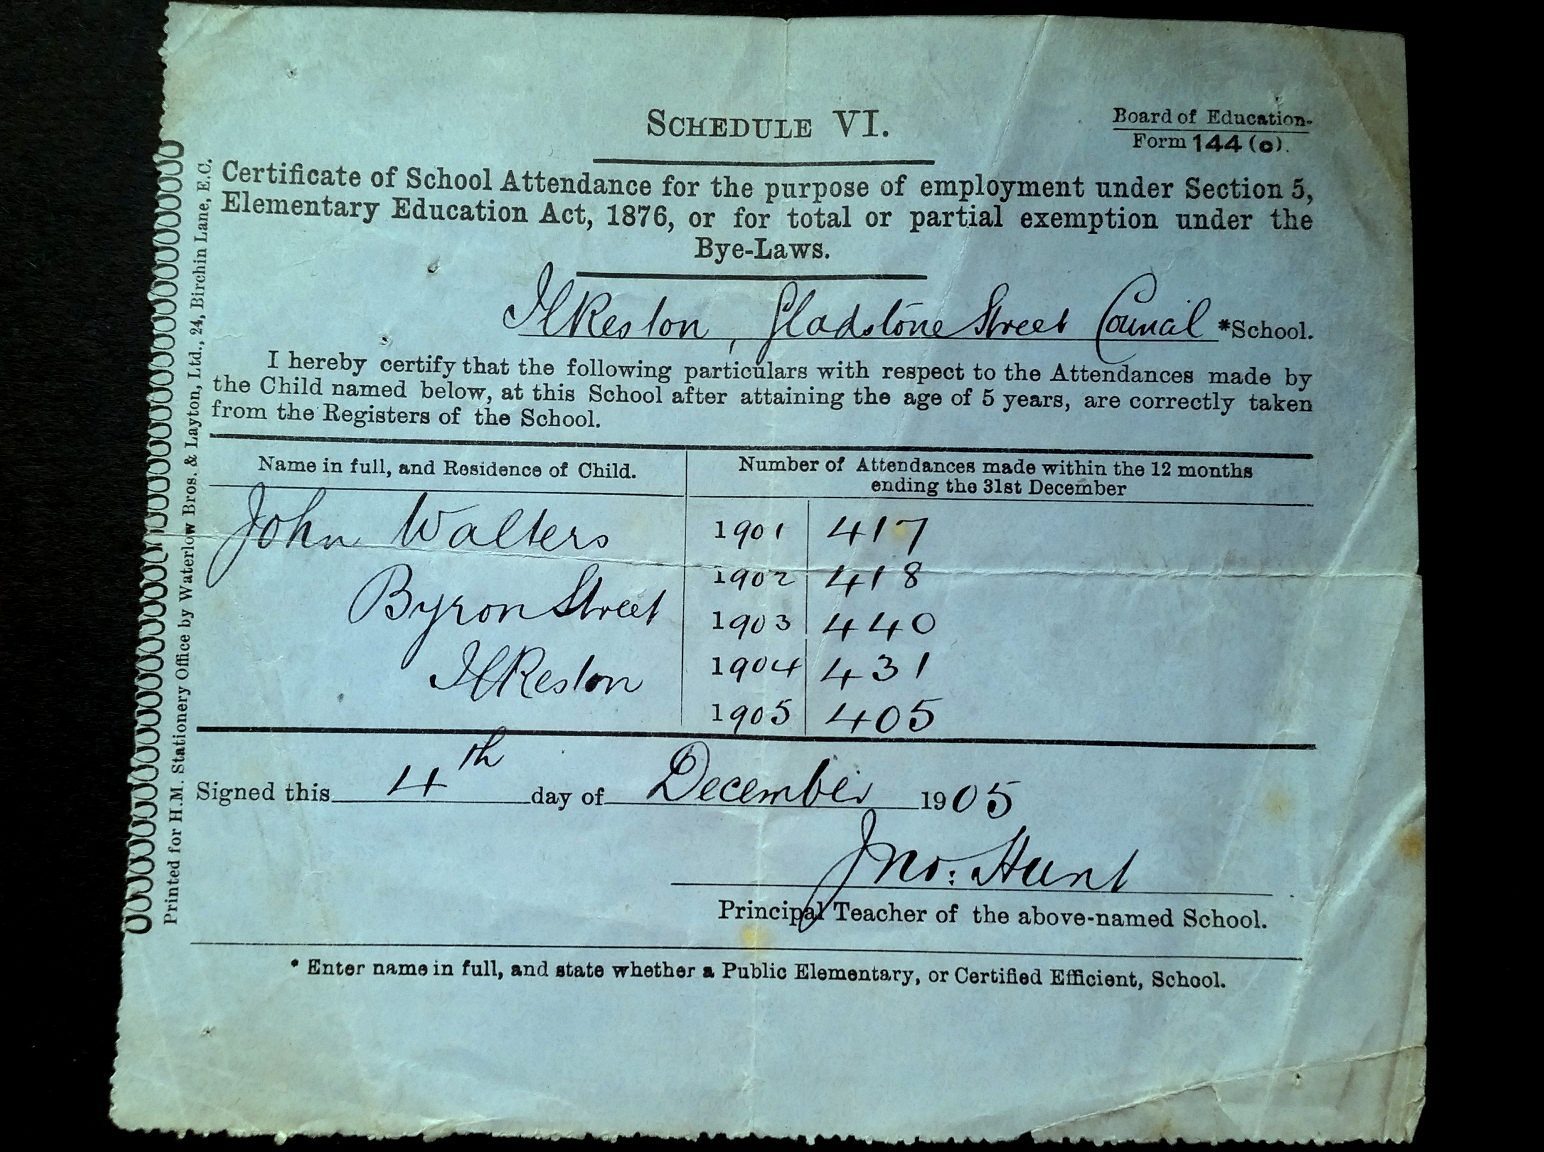 SCHEDULE VI.
Board of Education.
Form 144 (o).
Certificate of School Attendance for the purpose of employment under Section 5,
Elementary Education Act, 1876, or for total or partial exemption under the
Bye-Laws.
Ilkeston, Gladstone Street Council *School.
I hereby certify that the following particulars with respect to the Attendances made by
the Child named below, at this School after attaining the age of 5 years, are correctly taken
from the Registers of the School.
Name in full, and Residence of Child.
Number of Attendances made within the 12 months
ending the 31st December
John Walters
Byron Street
Ilkeston
1901 417
1902 418
1903 440
1904 431
1905 405
Signed this 4th day of December 1905
Jno. Hunt
Principal Teacher of the above-named School.
* Enter name in full, and state whether a Public Elementary, or Certified Efficient, School.
Printed for H.M. Stationery Office by Waterlow Bros. & Layton, Ltd., 24, Birchin Lane, E.C.